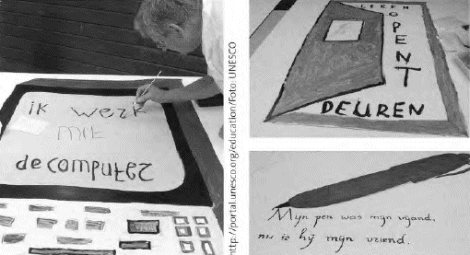 ik werk
mie
de computer
http://portal.unesco.org/education/Foto: UNESCO
LEREN
OPENT
DEUREN
Mijn pen was mijn vijand,
nu is hij mijn vriend.